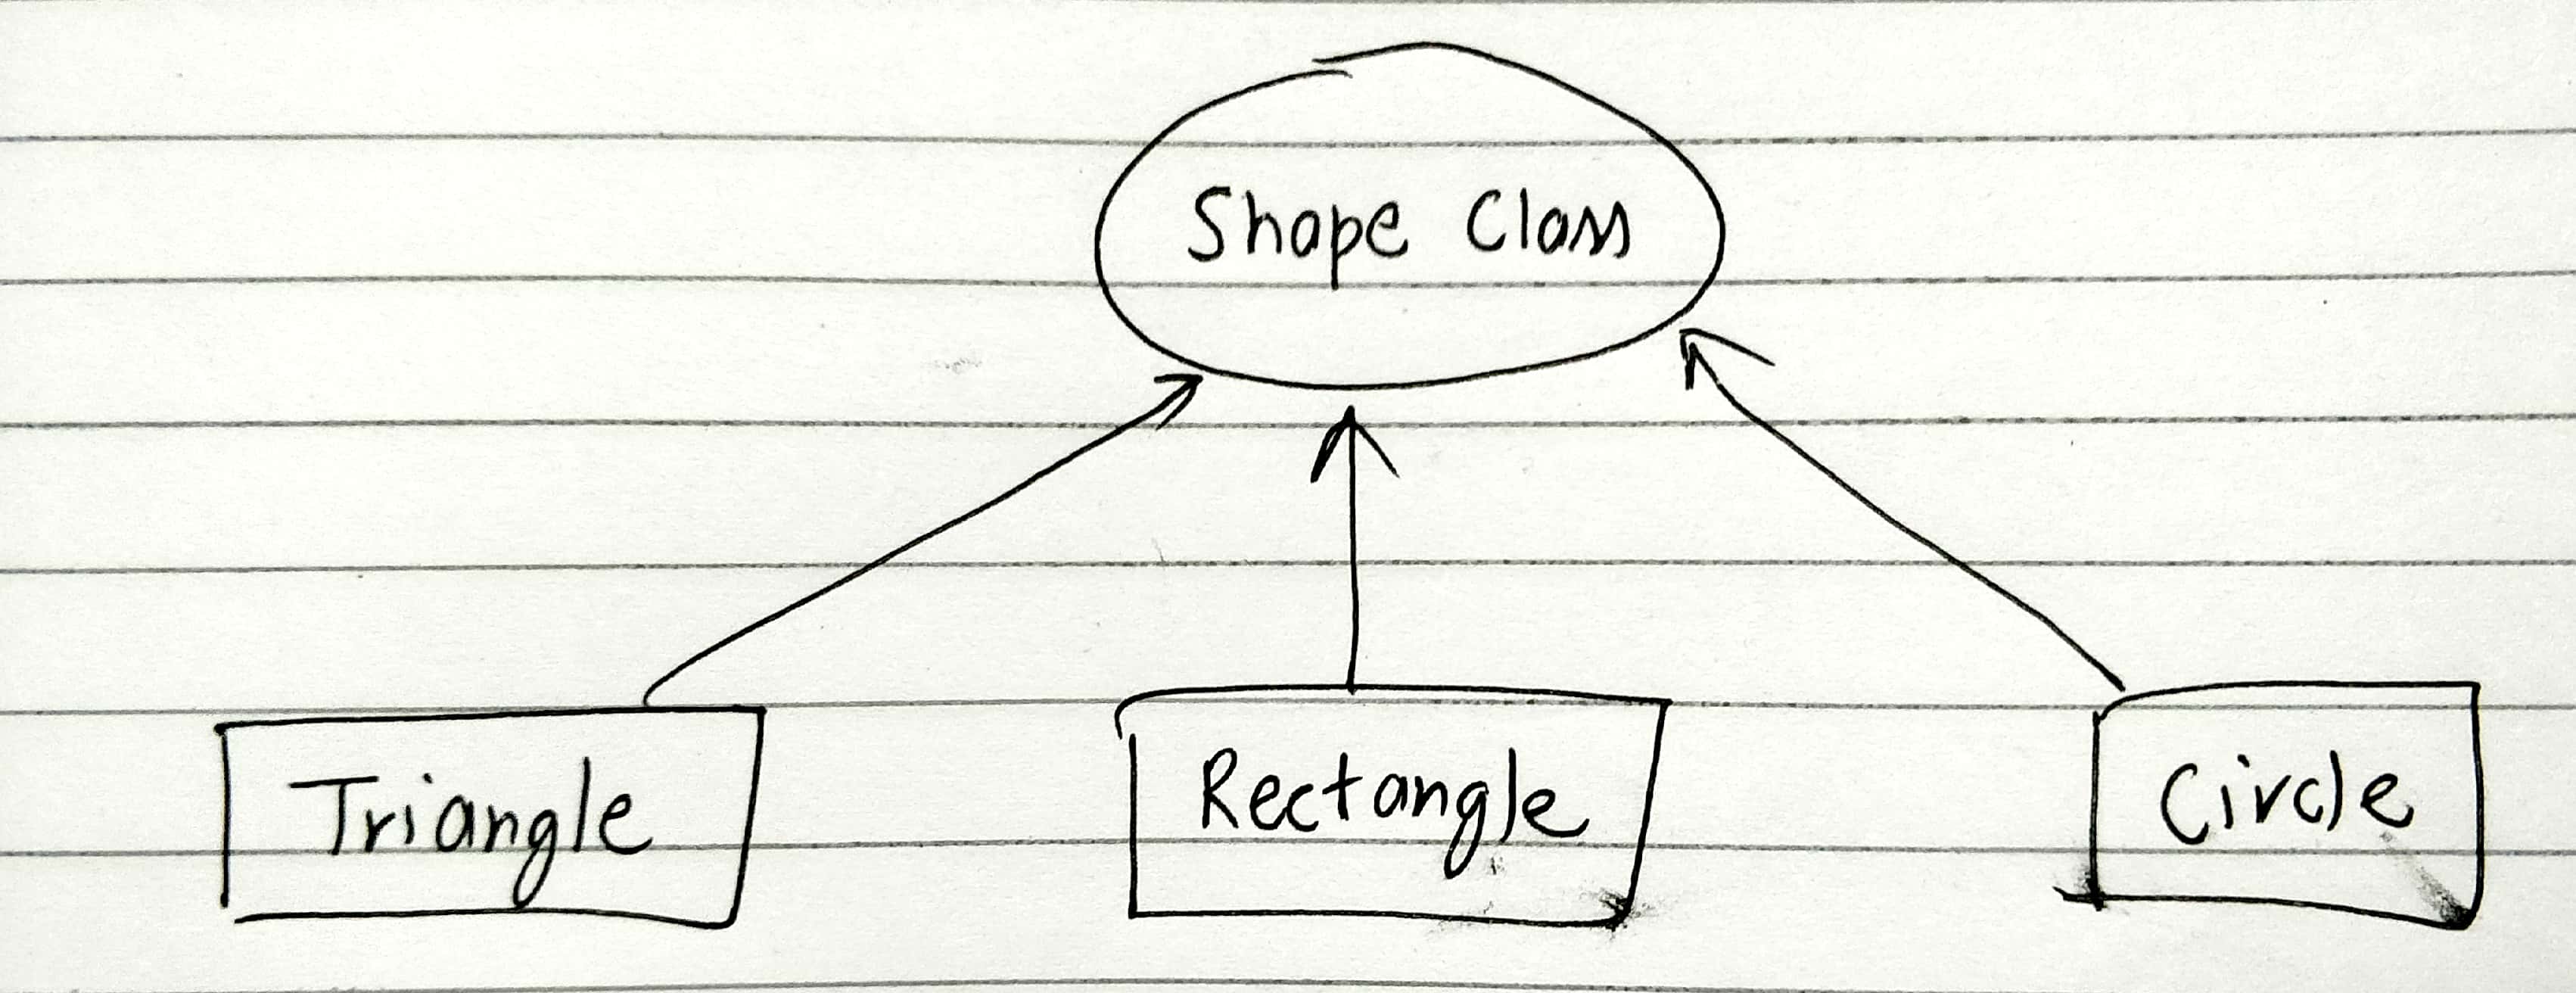 Shape Class
Triangle
Rectangle
Circle